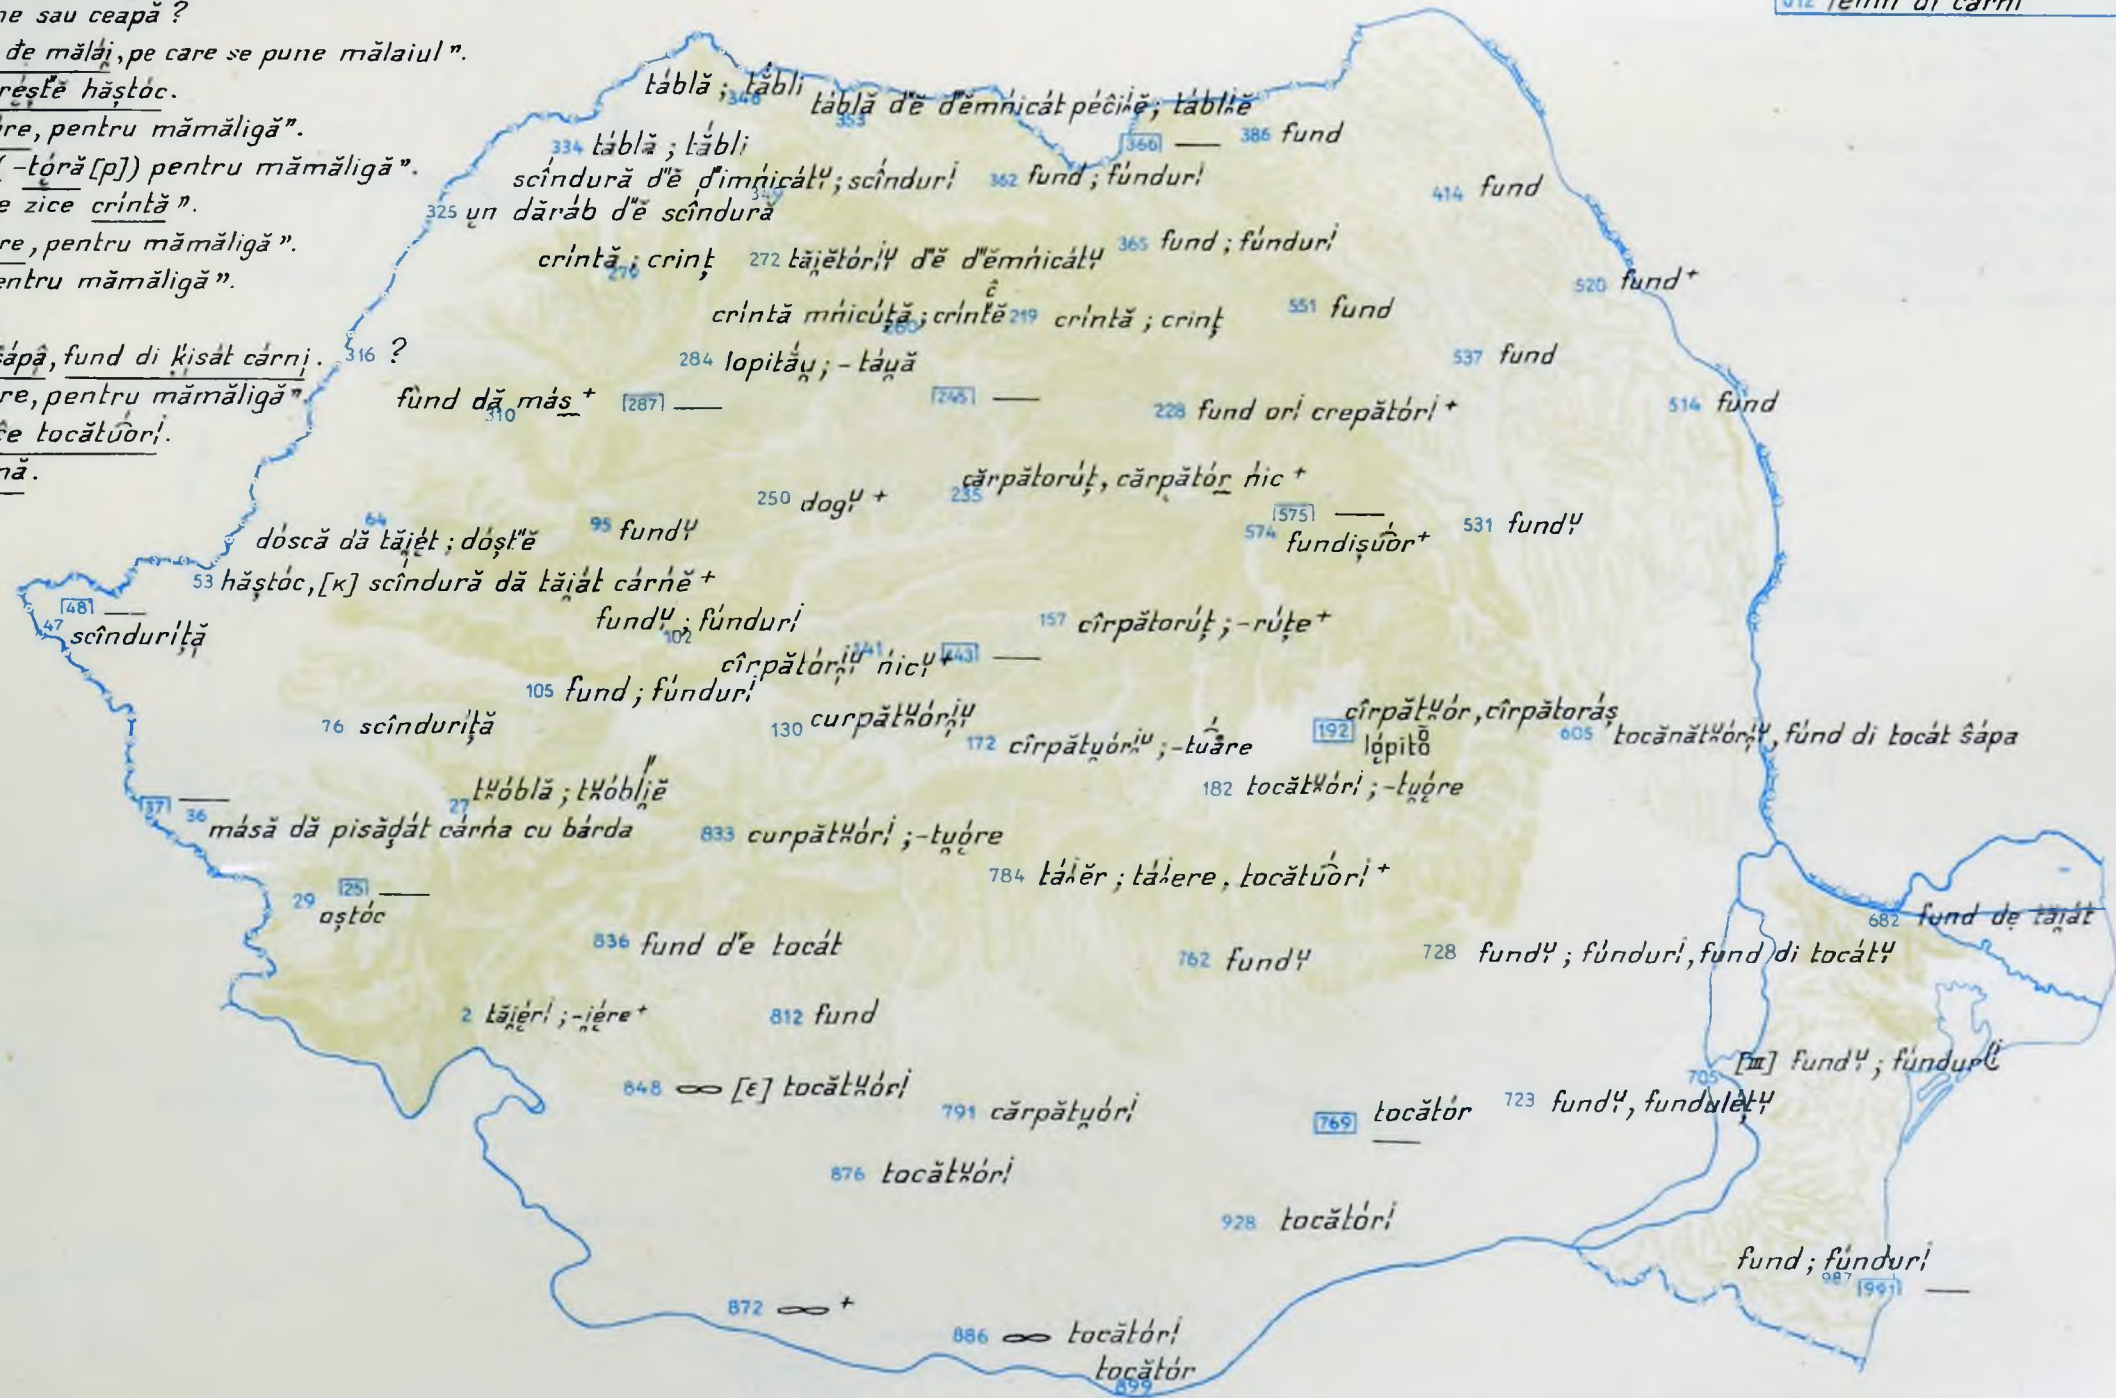 ne sau ceapă ?
de mălai̯, pe care se pune mălaiul".
hăștóc.
re, pentru mămăligă".
(-tóră [p]) pentru mămăligă".
e zice críntă".
re, pentru mămăligă".
entru mămăligă".
sápâ, fund di ḱisát cárni.
re, pentru mămăligă".
ce tocătúorⁱ.
nă.
612 lemn di cárni
táblă ; tắbli
346
táblă d'ĕ d'ĕmńicát péĉińĕ; táblĭĕ
353
334 táblă ; tắbli
[366] —
386 fund
scîndură d'ĕ d'imńicátᵘ; scîndurⁱ
349
362 fund ; fúndurⁱ
414 fund
325 un dăráb d'ĕ scîndură
críntă ; crinț
279
272 tăi̯ĕtórⁱᵘ d'ĕ d'ĕmńicátᵘ
365 fund ; fúndurⁱ
520 fund +
críntă mńicúță ; críntĕ
ĉ
260
219 críntă ; crinț
551 fund
316 ?
284 lopităṷ ; -táṷă
537 fund
fund dă más +
310
[287] —
[245] —
228 fund orⁱ crepătórⁱ +
514 fund
235 cărpătorúț, cărpătór ńic +
250 dogᵘ +
[575] —
574 fundișúor +
531 fundᵘ
64
dóscă dă tăi̯ét ; dóșt'ĕ
95 fundᵘ
53 hăștóc, [K] scîndură dă tăi̯át cárńĕ +
[48] —
47 scînduríță
fundᵘ ; fúndurⁱ
102
157 cîrpătorúț ; -rúțe +
cîrpătórⁱᵘ ńicᵘ +
141
[143] —
105 fund ; fúndurⁱ
76 scînduríță
130 curpătṷórⁱᵘ
172 cîrpătṷórⁱᵘ ; -tuắre
[192] cîrpătṷór, cîrpătoráș
lópitŏ
605 tocănătṷórⁱᵘ, fúnd di tocát ŝápa
182 tocătṷórⁱ ; -tṷóre
27 tṷóblă ; tṷóblĭĕ
[37] —
36 másă dă pisăḑát cárńa cu bárda
833 curpătṷórⁱ ; -tṷóre
784 tái̯ĕr ; tái̯ere, tocătúorⁱ +
[25] —
29 oștóc
682 fund de tăi̯át
836 fund d'e tocát
762 fundᵘ
728 fundᵘ ; fúndurⁱ, fund di tocátᵘ
2 tăi̯érⁱ ; -i̯ére +
812 fund
705 [III] fundᵘ ; fúndurⁱ
848 ∞ [ε] tocătṷórⁱ
791 cărpătṷórⁱ
[769] tocătór
—
723 fundᵘ, fundulétᵘ
876 tocătṷórⁱ
928 tocătórⁱ
fund ; fúndurⁱ
987
[991] —
872 ∞ +
886 ∞ tocătórⁱ
tocătór
899